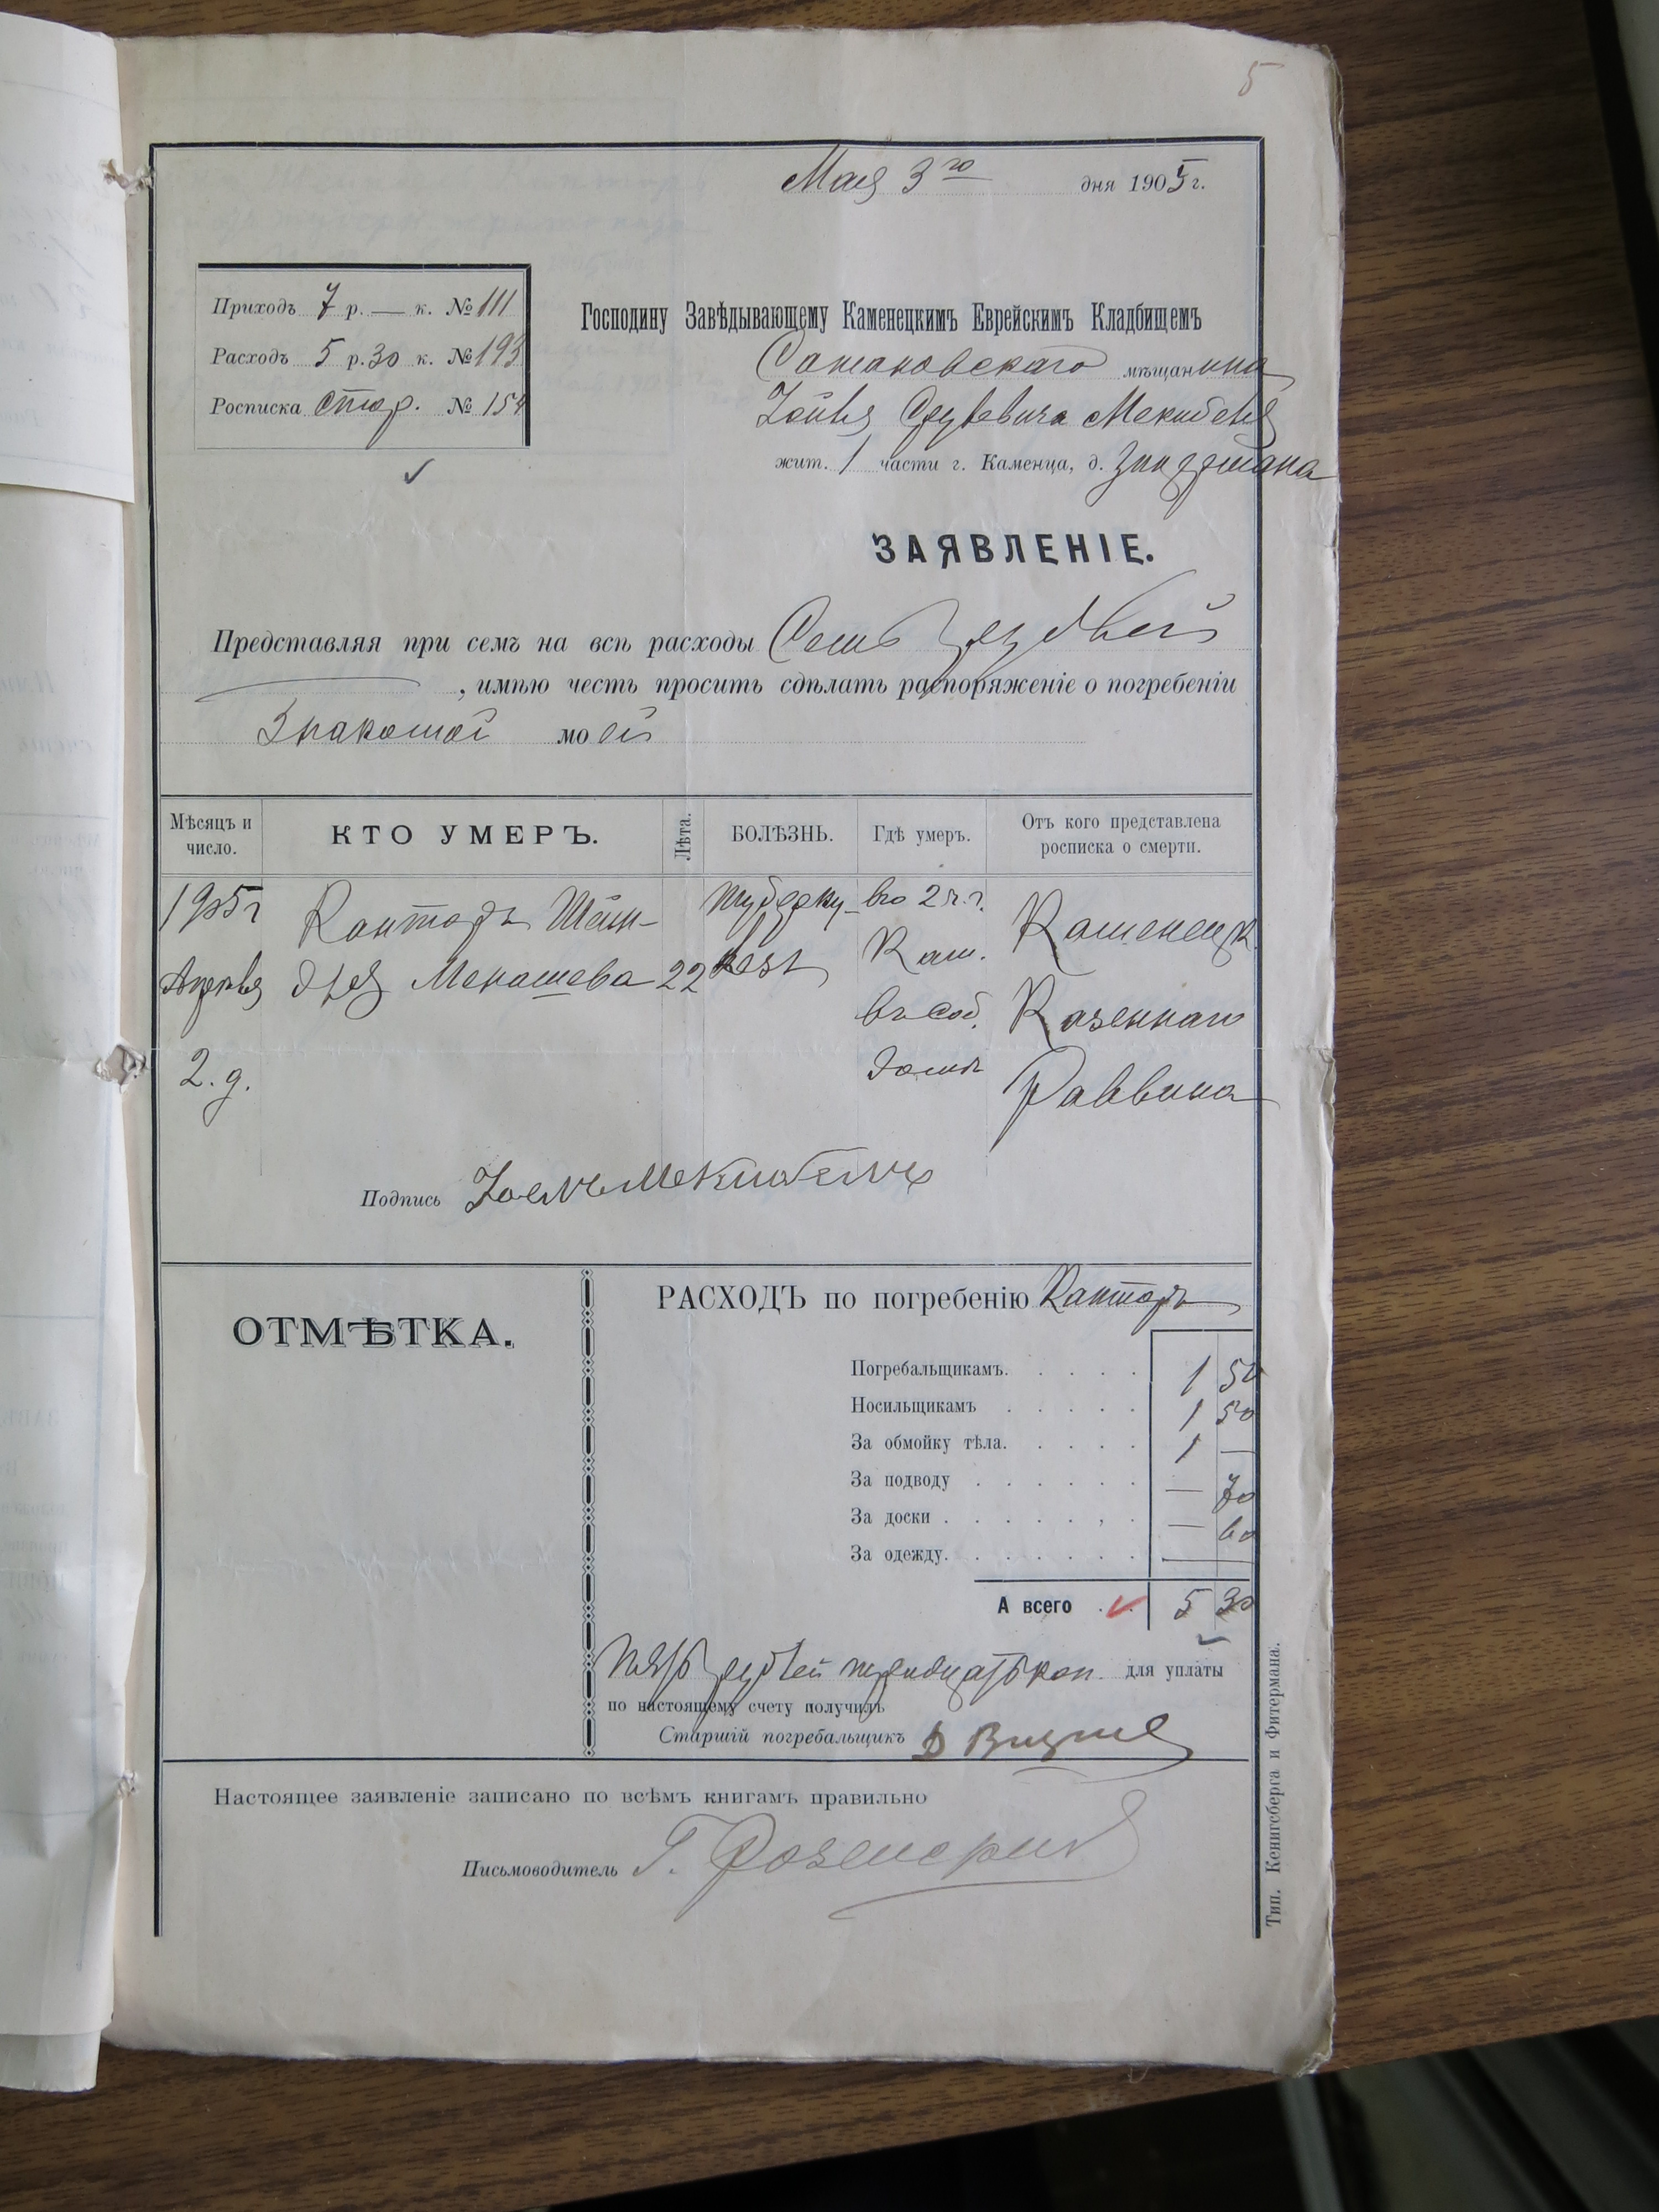 5
Мая 3го дня 1905 г.
Приходъ 7 р. — к. № 111
Расходъ 5 р. 30 к. № 193
Росписка стор. № 154
Господину Завѣдывающему Каменецкимъ Еврейскимъ Кладбищемъ
Сатановскаго мѣщанина
жит. 1 части г. Каменца, д.
ЗАЯВЛЕНІЕ.
Представляя при семъ на всѣ расходы Семь рублей
, имѣю честь просить сдѣлать распоряженіе о погребеніи
Знакомой моей
Мѣсяцъ и число.
КТО УМЕРЪ.
Лѣта.
БОЛѢЗНЬ.
Гдѣ умеръ.
Отъ кого представлена росписка о смерти.
1905 г Канторъ Шейн- туберку- во 2 ч. г. Каменецк.
Апрѣля для Менашева 22 лезъ Кам. Казеннаго
2. д. въ соб. домѣ Раввина
Подпись
ОТМѢТКА.
РАСХОДЪ по погребенію Канторъ
Погребальщикамъ. 1 50
Носильщикамъ 1 50
За обмойку тѣла. 1 —
За подводу — 70
За доски — 60
За одежду. —
А всего 5 30
Пять рублей тридцать коп. для уплаты
по настоящему счету получилъ
Старшій погребальщикъ
Настоящее заявленіе записано по всѣмъ книгамъ правильно
Письмоводитель Г.
Тип. Кенигсберга и Фитермана.